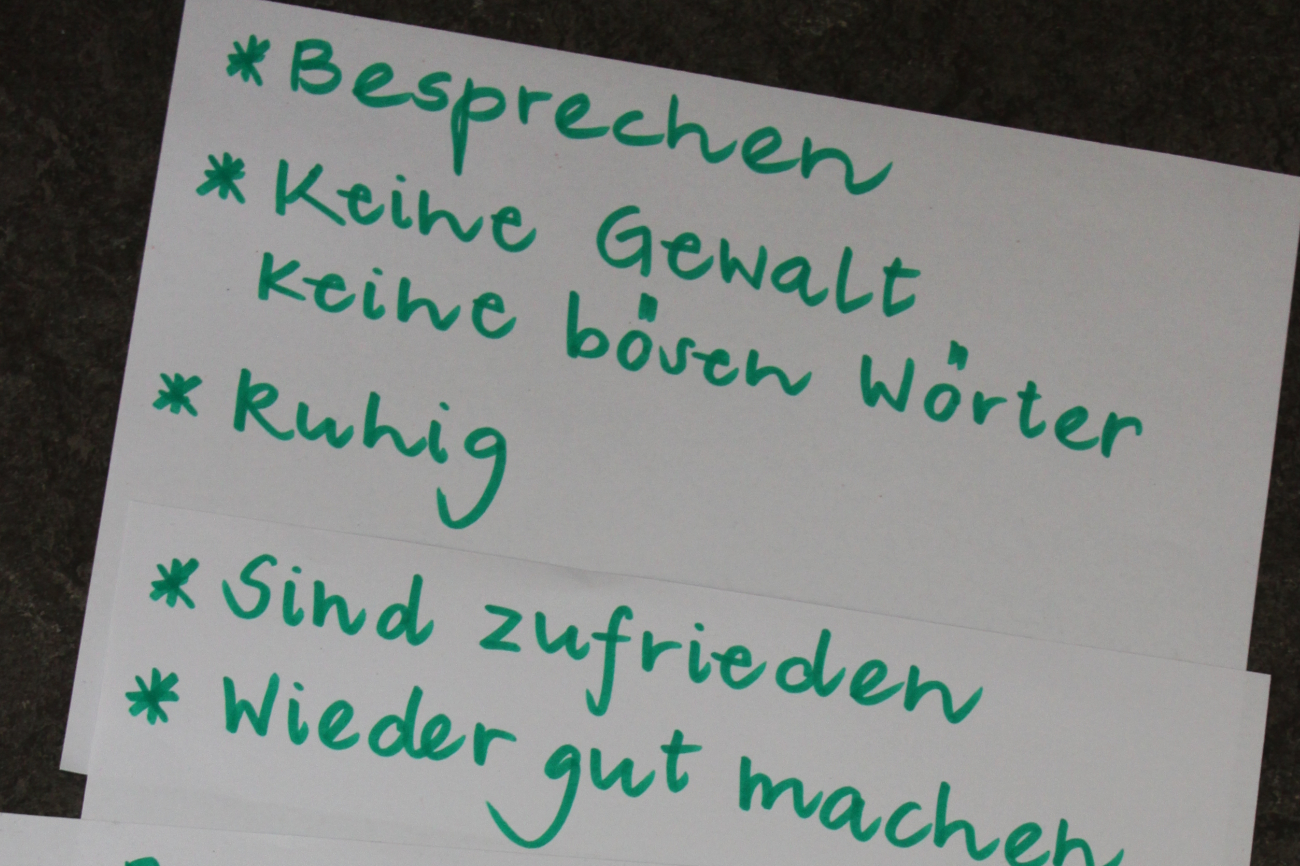 * Besprechen
* Keine Gewalt
keine bösen Wörter
* Ruhig
* Sind zufrieden
* Wieder gut machen